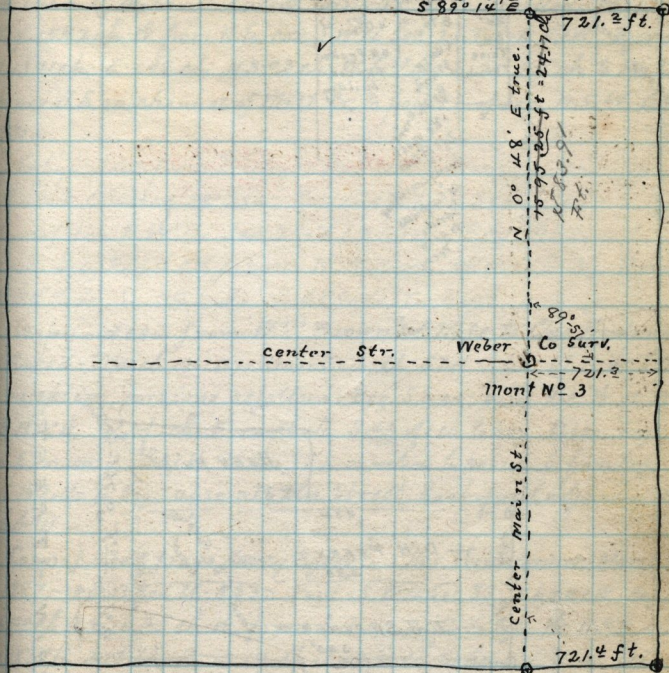 S 89° 14' E
721.2 ft.
N 0° 48' E true.
1595.25 ft = 24.17 ch
1583.91
Ft.
89° 57'
Center Str.
Weber Co Surv.
721.3
Mont No 3
Center Main St.
721.4 ft.